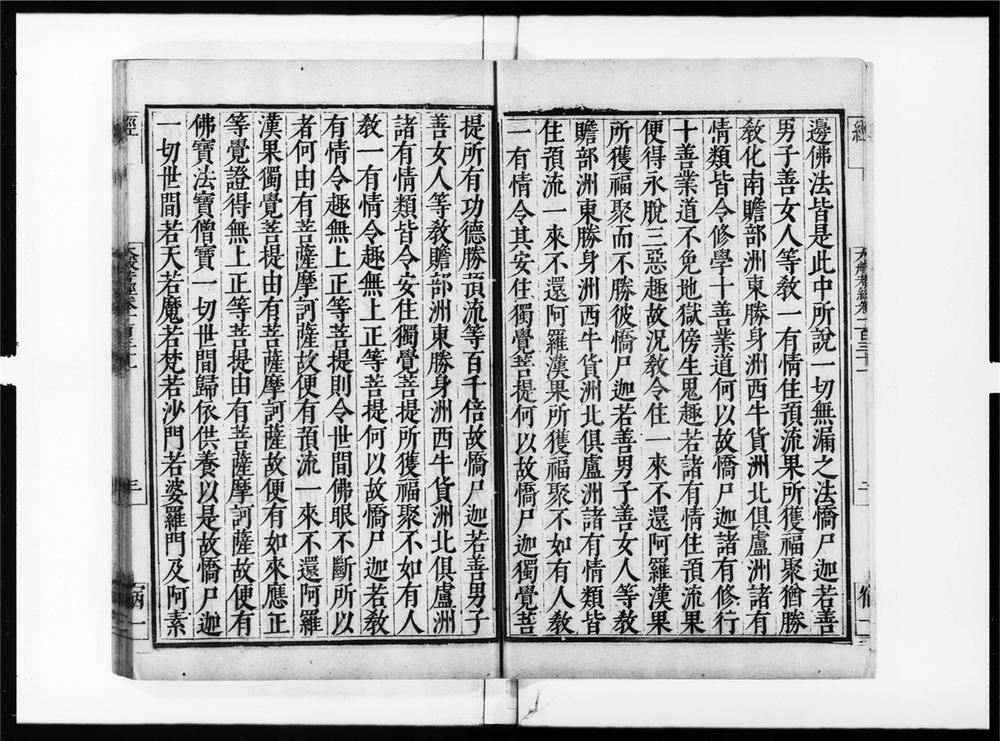 邊佛法皆是此中所說一切無漏之法憍尸迦若善
男子善女人等敎一有情住預流果所獲福聚猶勝
敎化南贍部洲東勝身洲西牛貨洲北俱盧洲諸有
情類皆令修學十善業道何以故憍尸迦諸有修行
十善業道不免地獄傍生鬼趣若諸有情住預流果
便得永脫三惡趣故況敎令住一來不還阿羅漢果
所獲福聚而不勝彼憍尸迦若善男子善女人等敎
贍部洲東勝身洲西牛貨洲北俱盧洲諸有情類皆
住預流一來不還阿羅漢果所獲福聚不如有人敎
一有情令其安住獨覺菩提何以故憍尸迦獨覺菩
提所有功德勝預流等百千倍故憍尸迦若善男子
善女人等敎贍部洲東勝身洲西牛貨洲北俱盧洲
諸有情類皆令安住獨覺菩提所獲福聚不如有人
敎一有情令趣無上正等菩提何以故憍尸迦若敎
有情令趣無上正等菩提則令世間佛眼不斷所以
者何由有菩薩摩訶薩故便有預流一來不還阿羅
漢果獨覺菩提由有菩薩摩訶薩故便有如來應正
等覺證得無上正等菩提由有菩薩摩訶薩故便有
佛寶法寶僧寶一切世間歸依供養以是故憍尸迦
一切世間若天若魔若梵若沙門若婆羅門及阿素
經
三